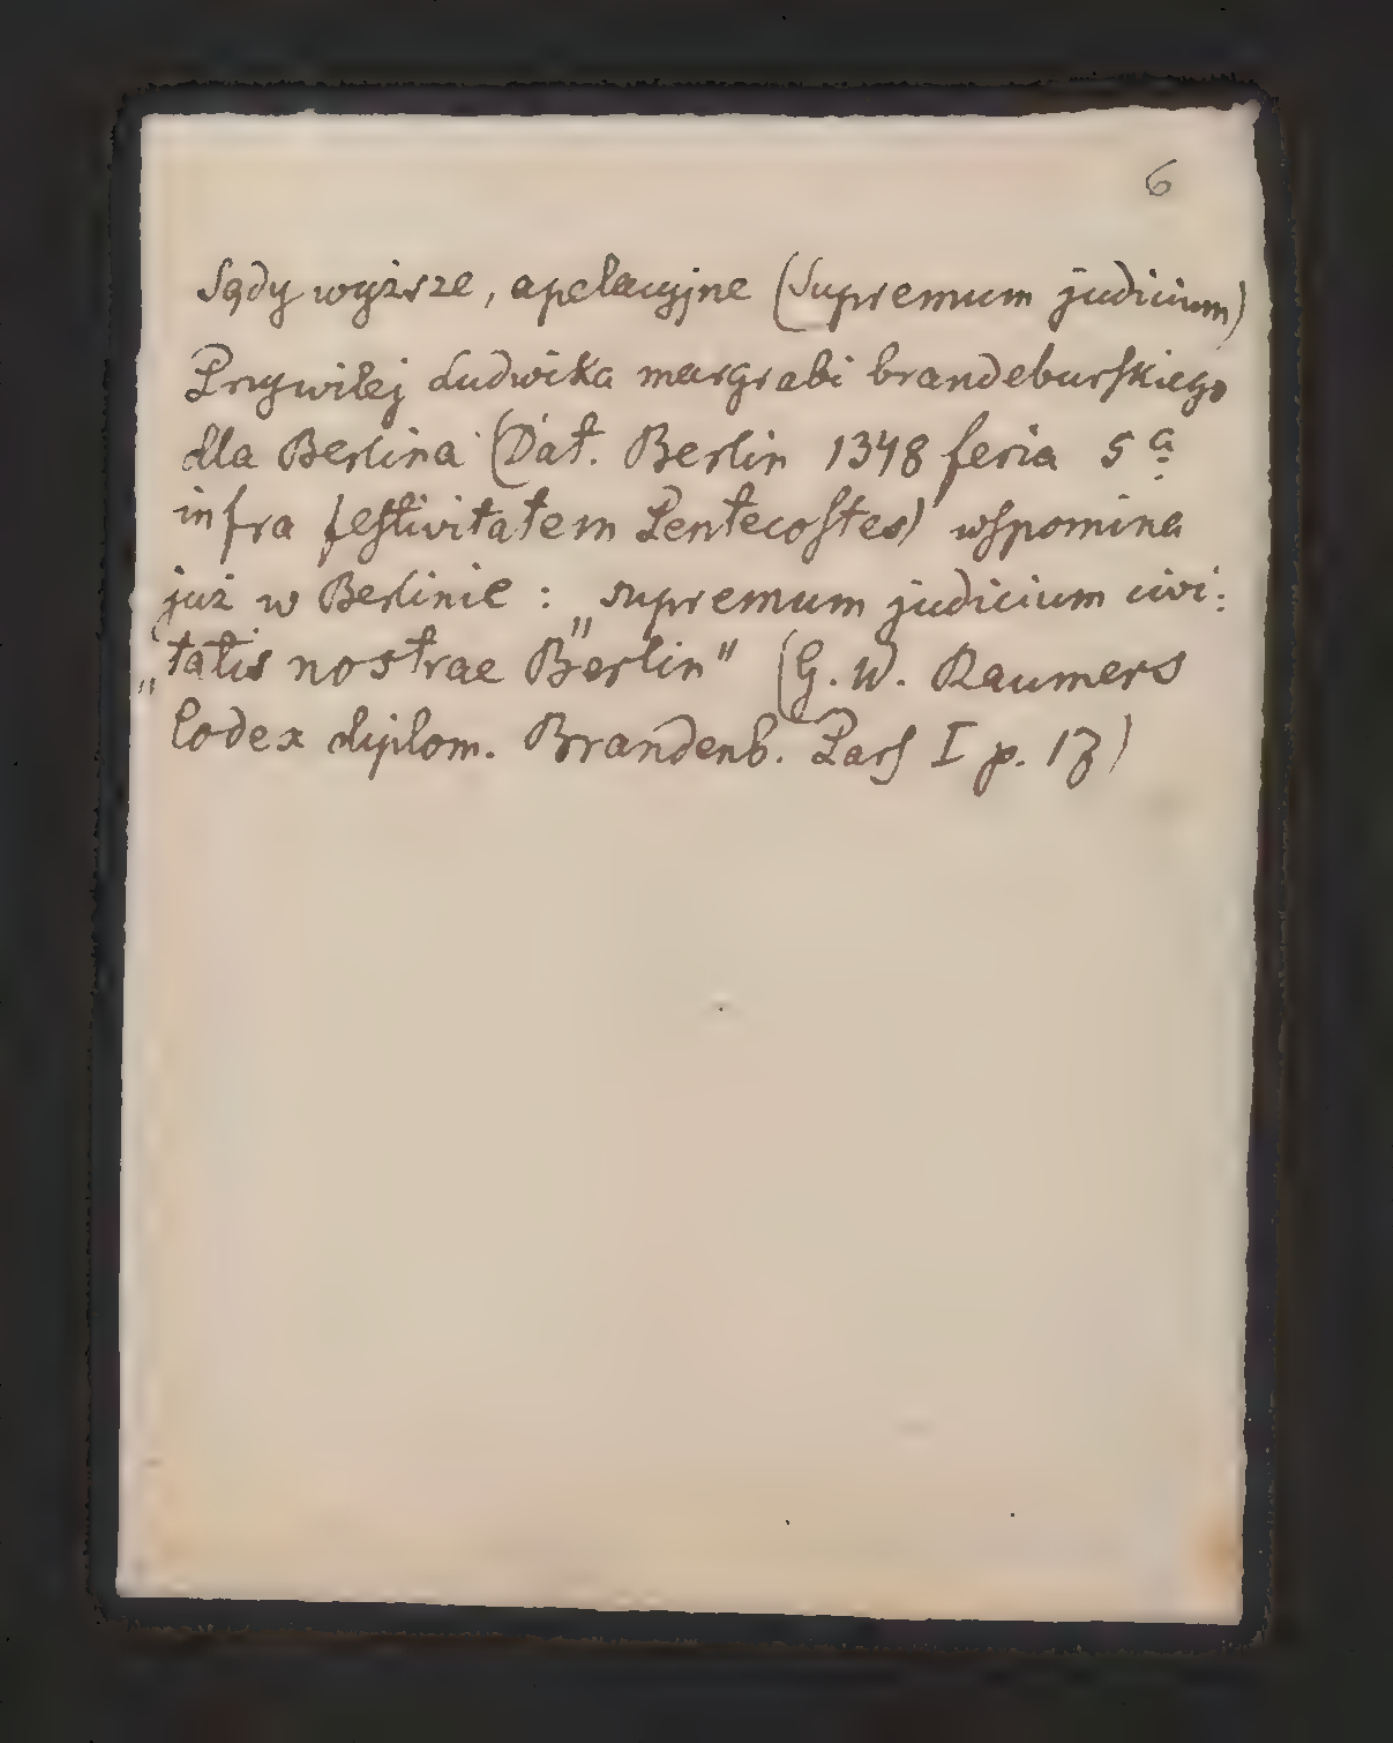 6
Sądy wyższe, apelacyjne (Supremum judicium)
Przywilej Ludwika margrabi brandeburskiego
dla Berlina (Dat. Berlin 1348 feria 5ª
infra festivitatem Pentecostes) wspomina
już w Berlinie : „supremum judicium civi:
„tatis nostrae Berlin" (G. W. Raumers
Codex diplom. Brandenb. Pars I p. 13)